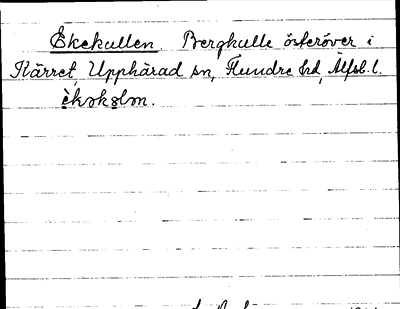 Ekekullen. Bergkulle österöver i
Kärret, Upphärad sn, Flundre hd, Älfsb. l.